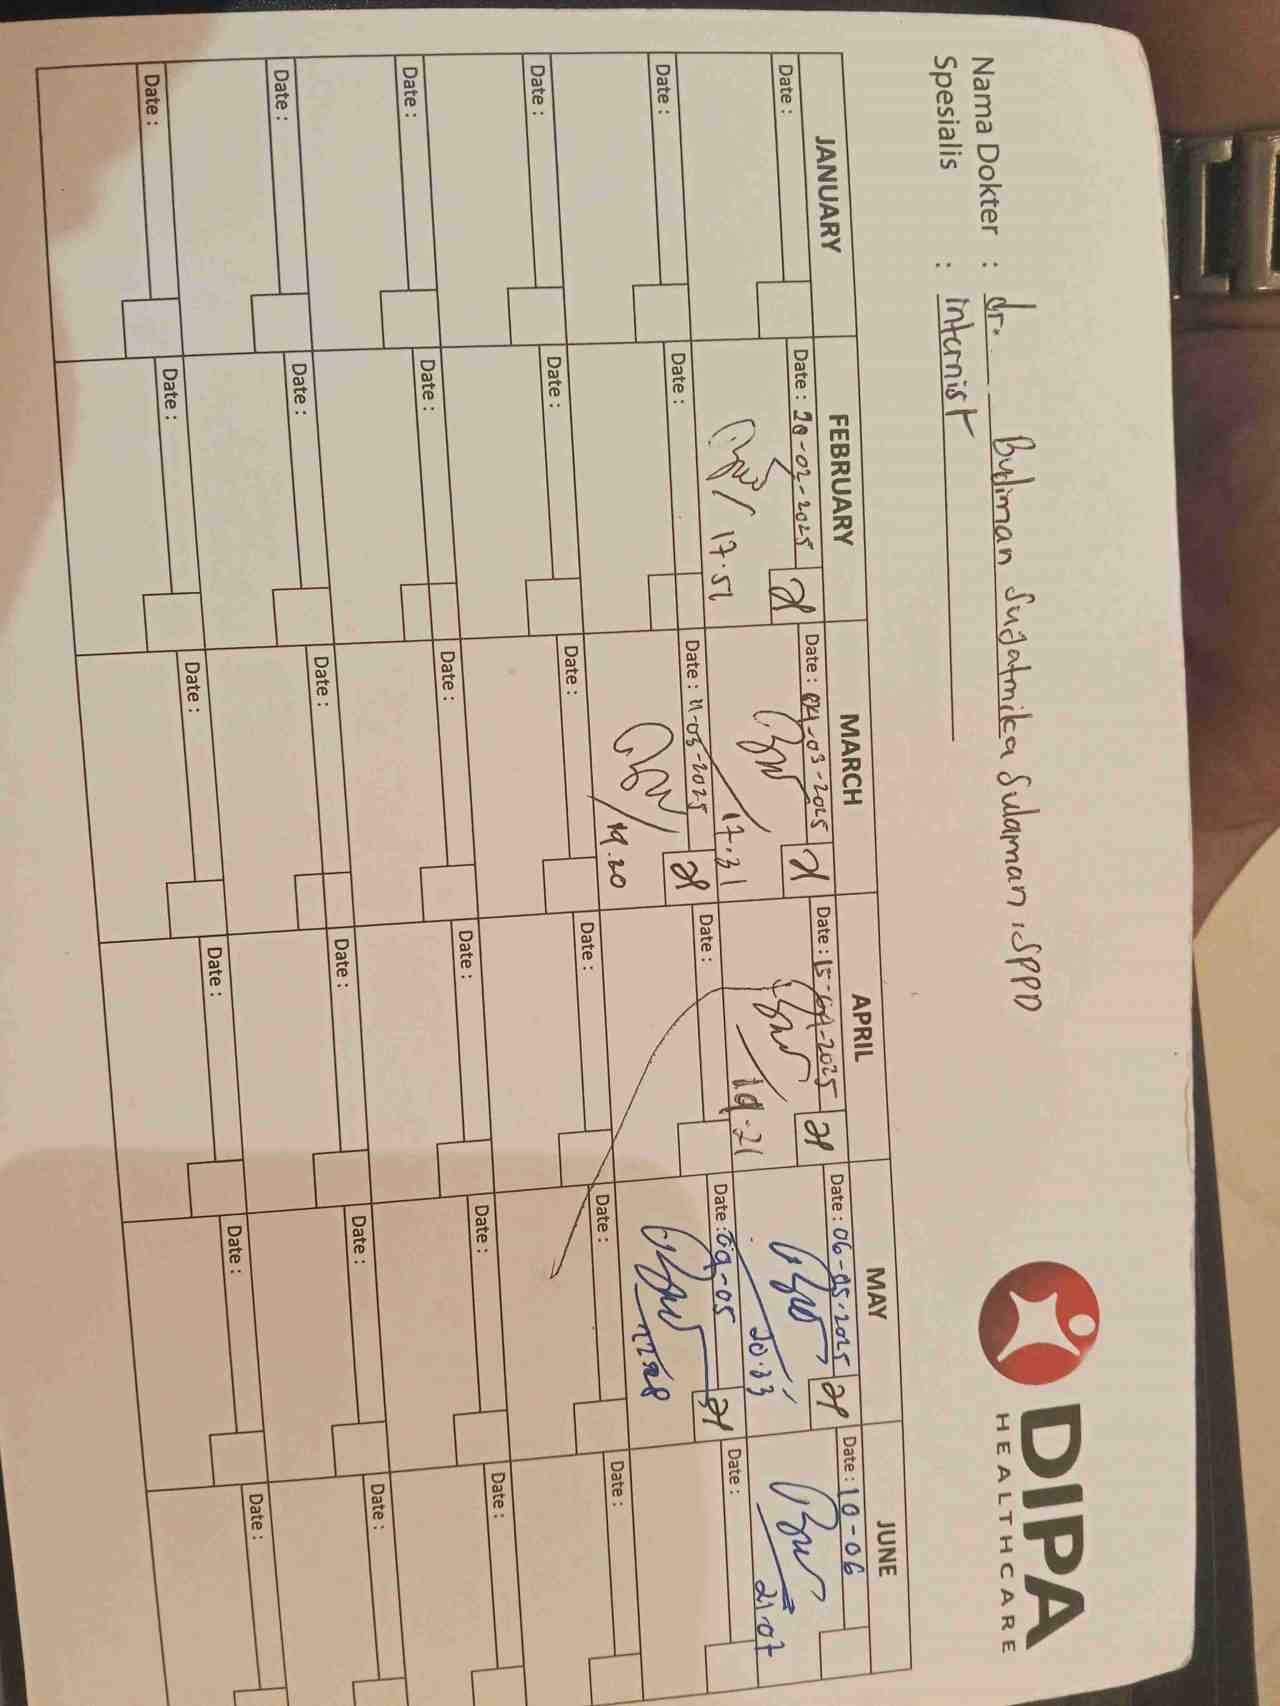 DIPA
HEALTHCARE
Nama Dokter : dr. Budiman Sujatmika Sulaman, SPPD
Spesialis : Internist
JANUARY FEBRUARY MARCH APRIL MAY JUNE
Date : Date : 20-02-2025 Date : 04-03-2025 Date : 15-04-2025 Date : 06-05-2025 Date : 10-06
17.51 17.31 19.21 20.33 21.07
Date : Date : Date : 11-03-2025 Date : Date : 09-05 Date :
19.20
Date : Date : Date : Date : Date : Date :
Date : Date : Date : Date : Date : Date :
Date : Date : Date : Date : Date : Date :
Date : Date : Date : Date : Date : Date :